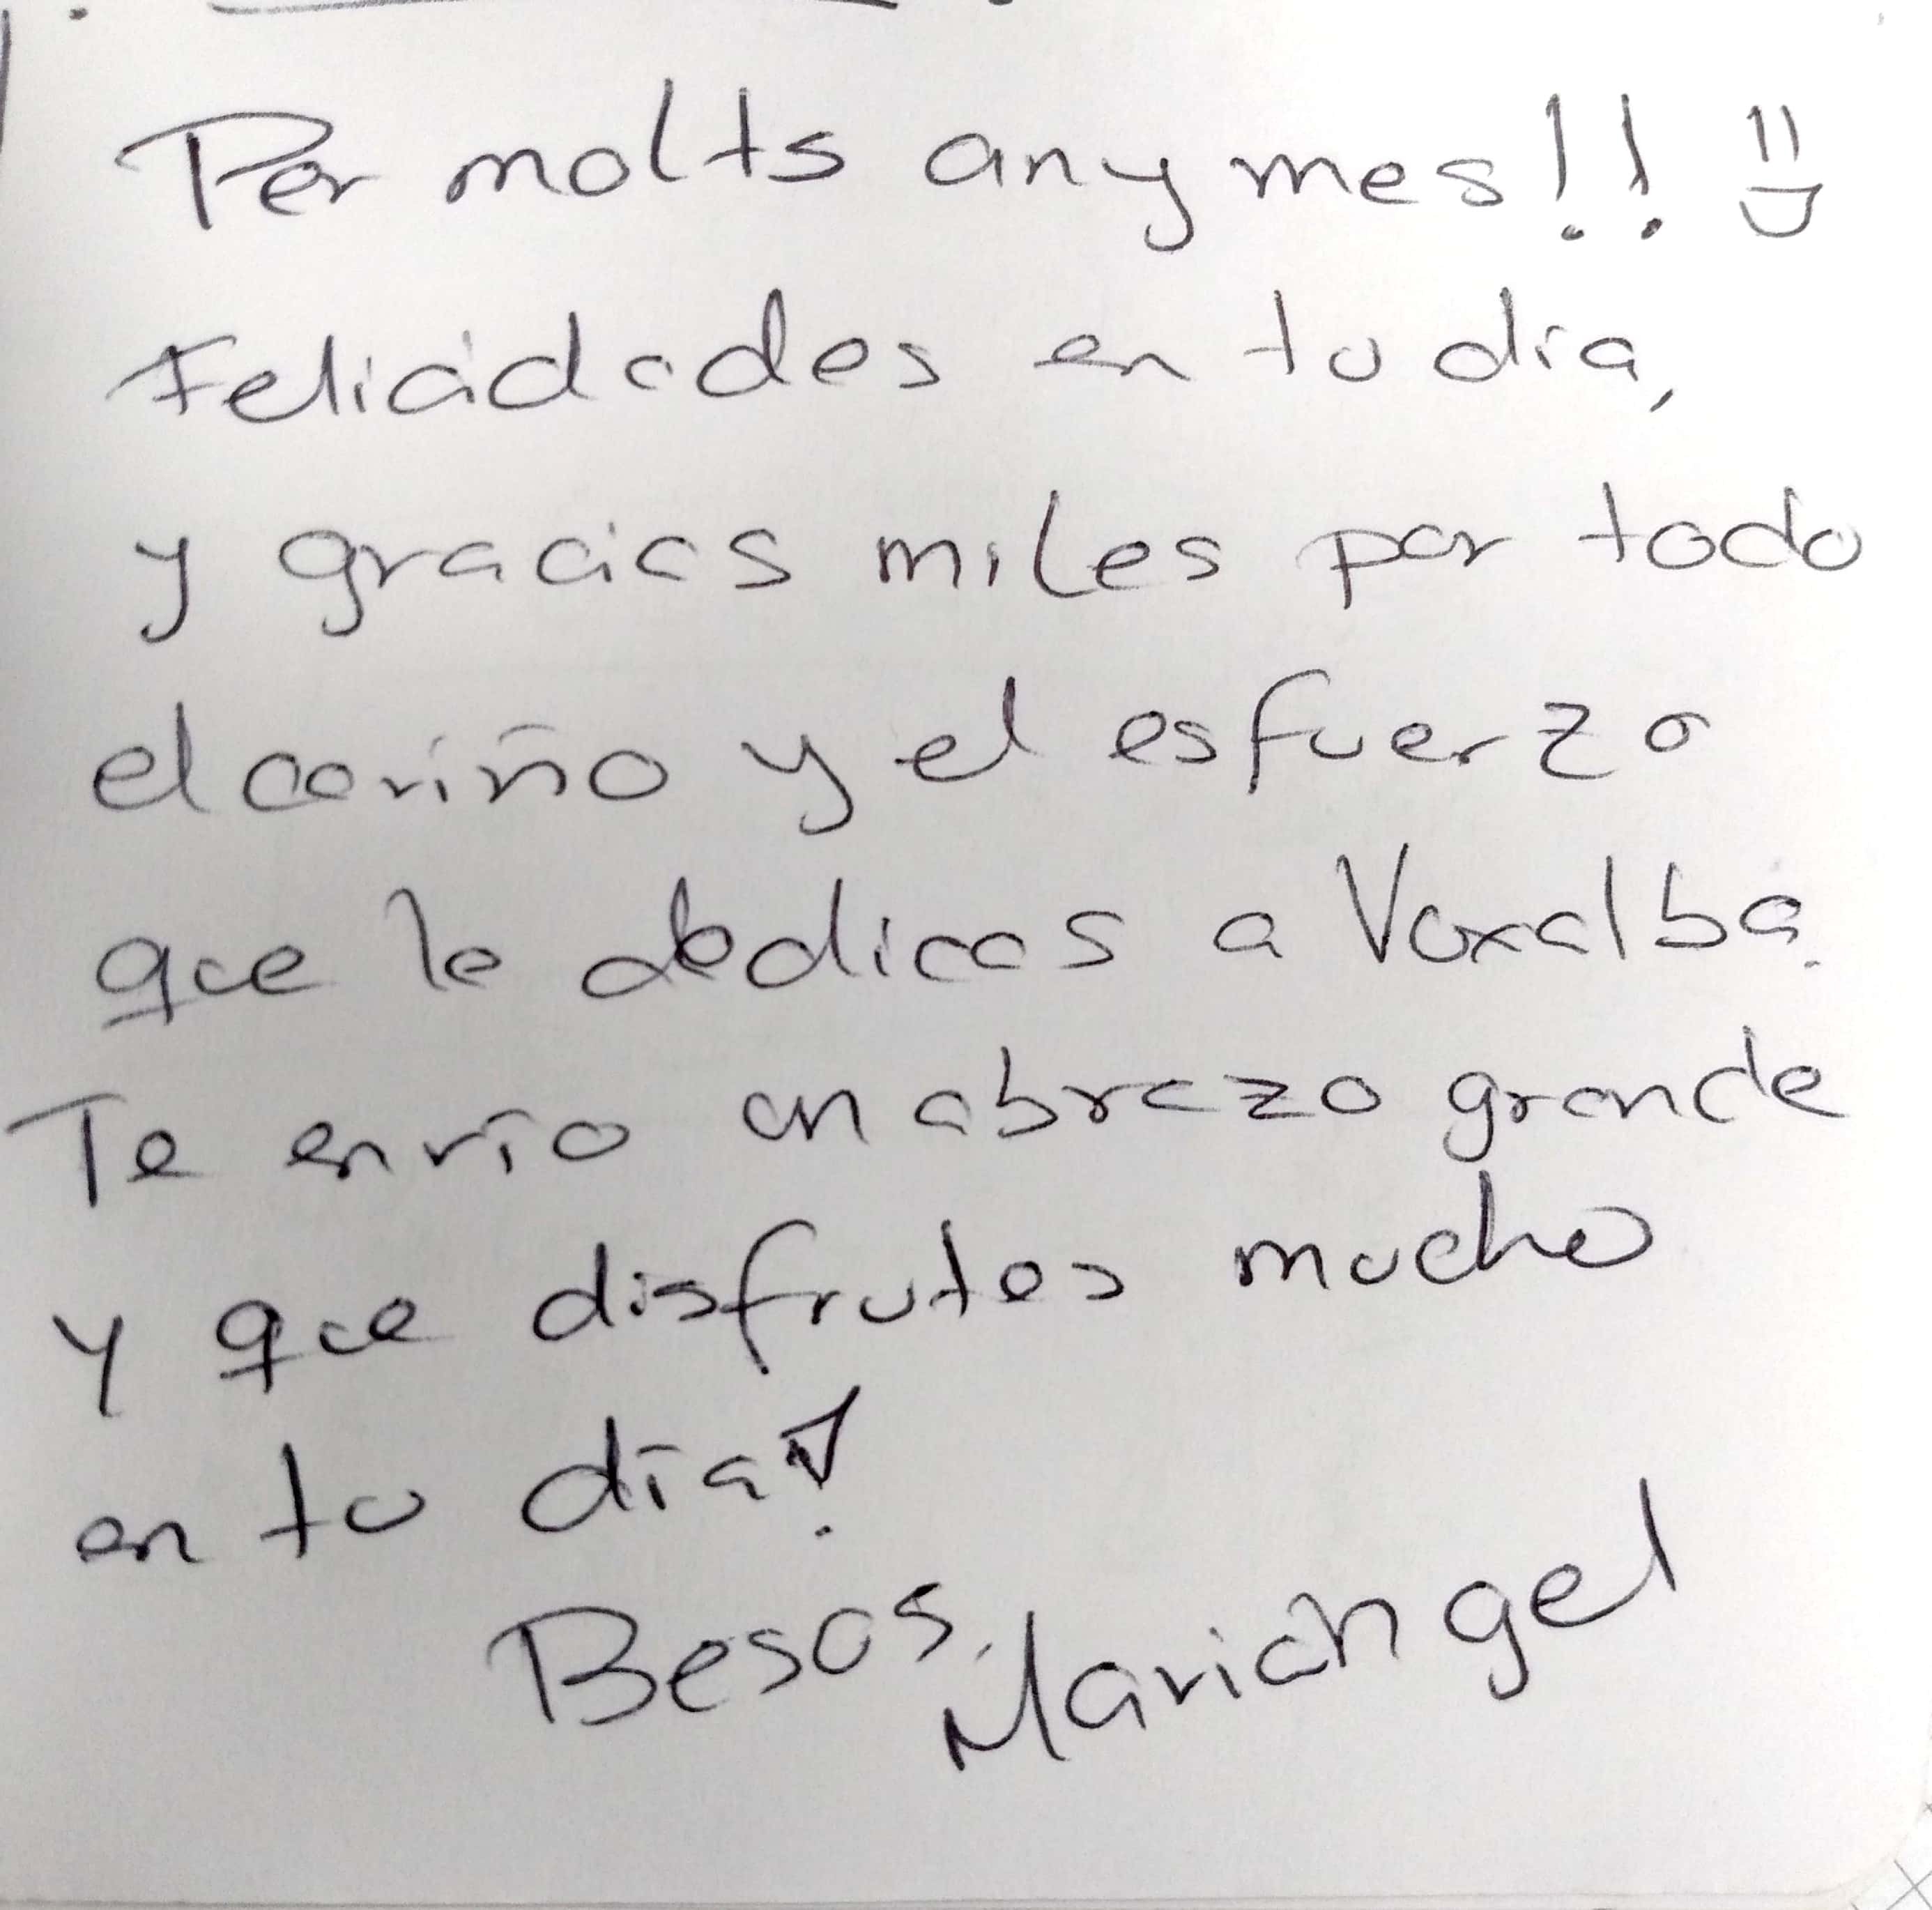 Per molts any mes!! =D
Felicidades en tu día,
y gracias miles por todo
el cariño y el esfuerzo
que le dedicas a Voxalba.
Te envío un abrazo grande
y que disfrutes mucho
en tu día!
Besos,
Mariangel